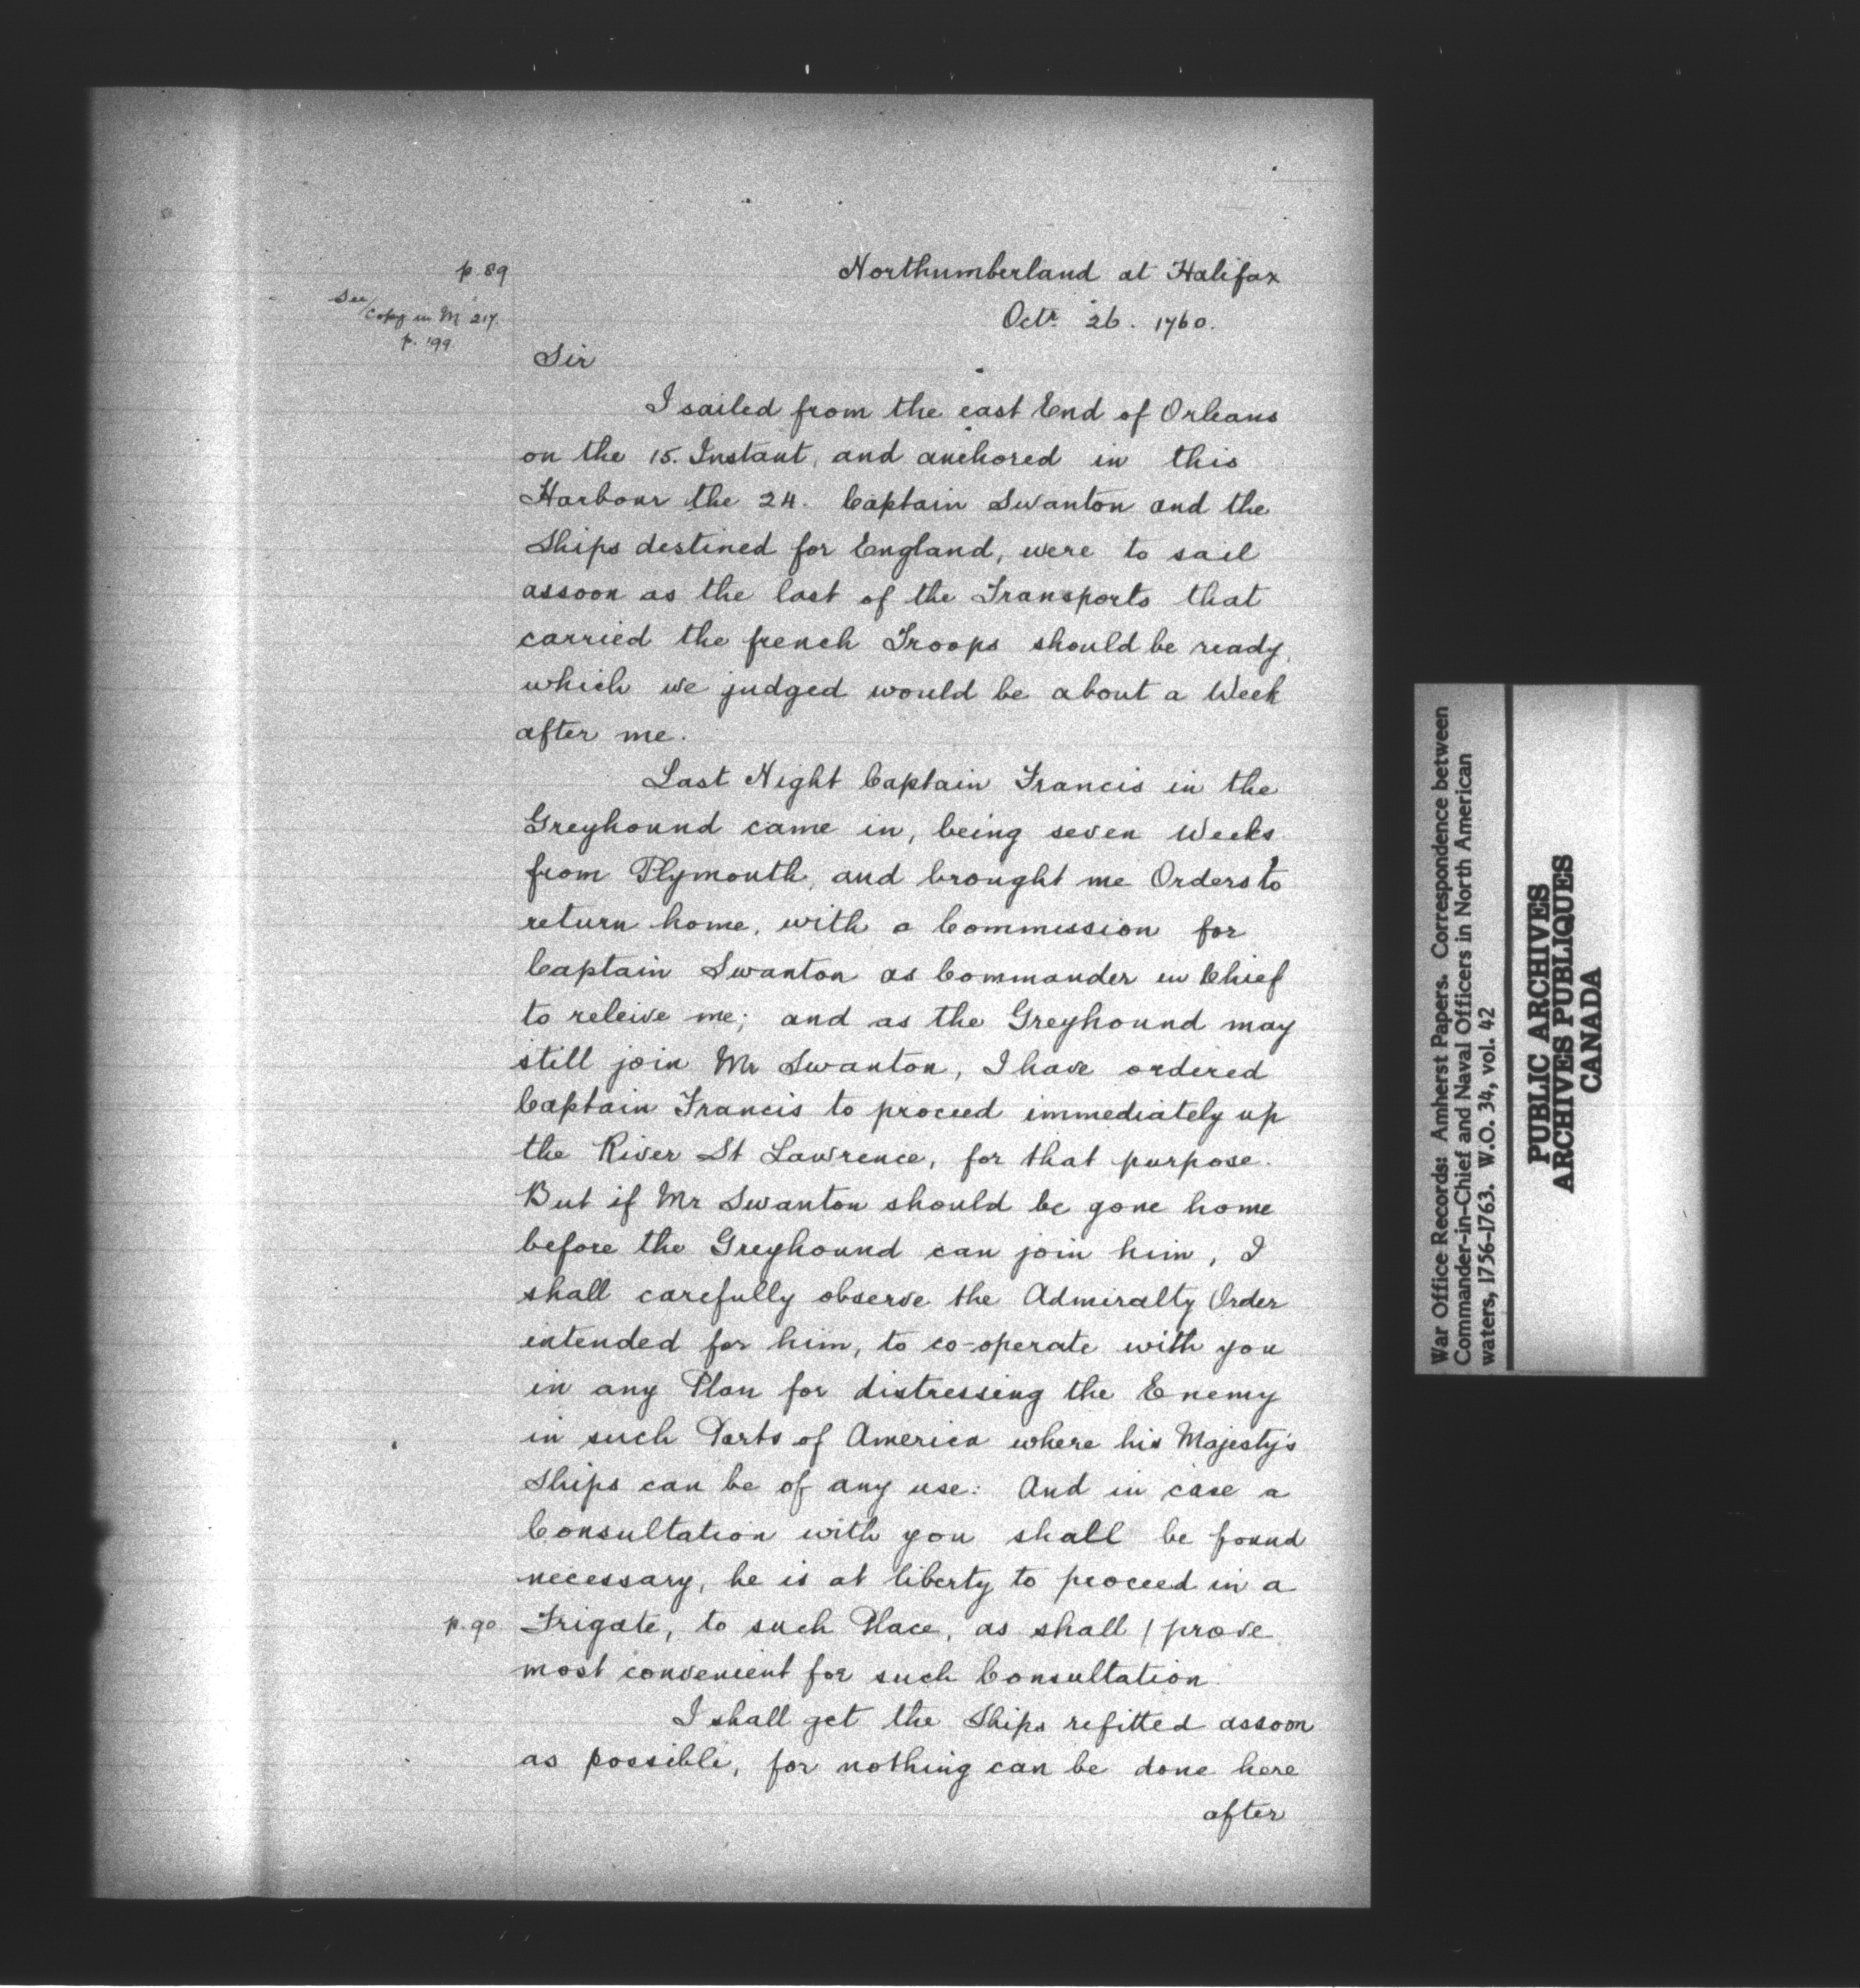 p. 89
See
Copy in M 217.
p. 199.
Northumberland at Halifax
Octr. 26. 1760.
Sir
I sailed from the east End of Orleans
on the 15. Instant, and anchored in this
Harbour the 24. Captain Swanton and the
Ships destined for England, were to sail
assoon as the last of the Transports that
carried the french Troops should be ready,
which we judged would be about a Week
after me.
Last Night Captain Francis in the
Greyhound came in, being seven Weeks
from Plymouth, and brought me Orders to
return home, with a Commission for
Captain Swanton as Commander in Chief
to releive me; and as the Greyhound may
still join Mr Swanton, I have ordered
Captain Francis to proceed immediately up
the River St Lawrence, for that purpose.
But if Mr Swanton should be gone home
before the Greyhound can join him, I
shall carefully observe the Admiralty Order
intended for him, to co-operate with you
in any Plan for distressing the Enemy
in such Parts of America where his Majesty's
Ships can be of any use: And in case a
Consultation with you shall be found
necessary, he is at liberty to proceed in a
p. 90 Frigate, to such Place, as shall / prove
most convenient for such Consultation.
I shall get the Ships refitted assoon
as possible, for nothing can be done here
after
War Office Records: Amherst Papers. Correspondence between
Commander-in-Chief and Naval Officers in North American
waters, 1756-1763. W.O. 34, vol. 42
PUBLIC ARCHIVES
ARCHIVES PUBLIQUES
CANADA